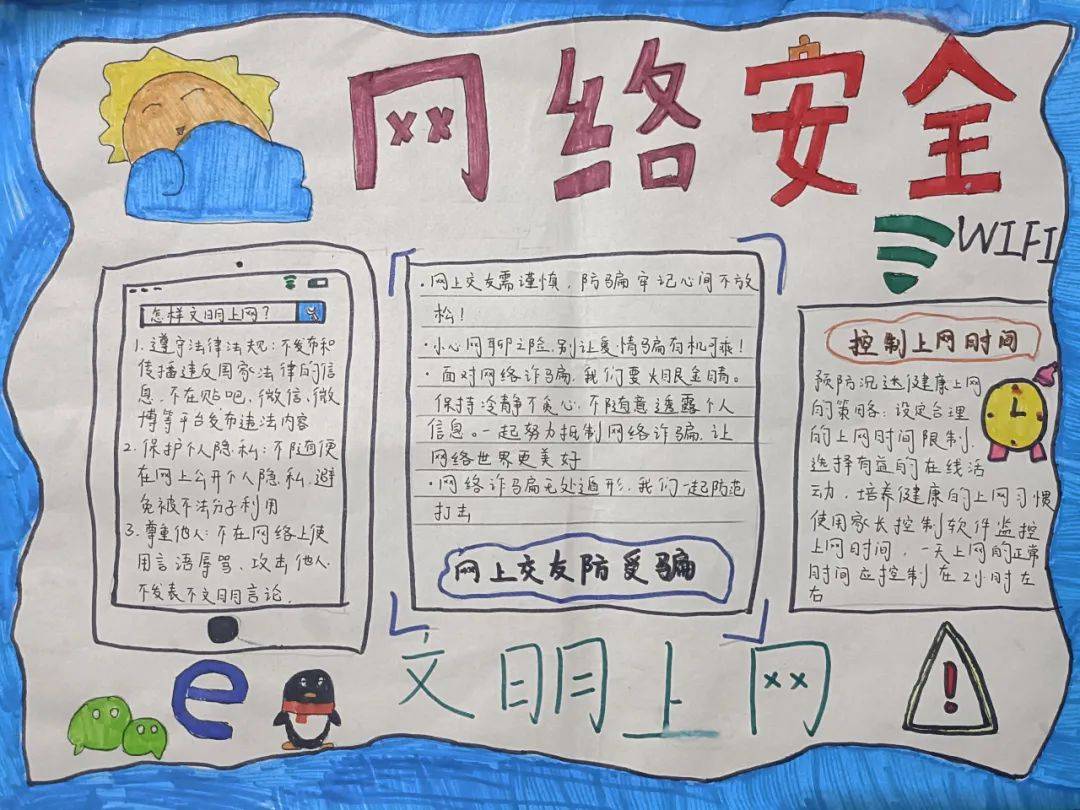 网络安全
WIFI
怎样文明上网?
1.遵守法律法规:不发布和
传播违反国家法律的信
息,不在贴吧、微信、微
博等平台发布违法内容
2.保护个人隐私:不随便
在网上公开个人隐私,避
免被不法分子利用
3.尊重他人:不在网络上使
用言语辱骂、攻击他人,
不发表不文明言论.
·网上交友需谨慎,防骗牢记心间不放
松!
·小心网聊之险,别让爱情骗有机可乘!
·面对网络诈骗,我们要火眼金睛。
保持冷静不贪心,不随意透露个人
信息。一起努力抵制网络诈骗,让
网络世界更美好
·网络诈骗无处遁形,我们一起防范
打击
网上交友防受骗
控制上网时间
预防沉迷健康上网
的策略:设定合理
的上网时间限制,
选择有益的在线活
动,培养健康的上网习惯
使用家长控制软件监控
上网时间,一天上网的正常
时间应控制在2小时左
右
e
文明上网